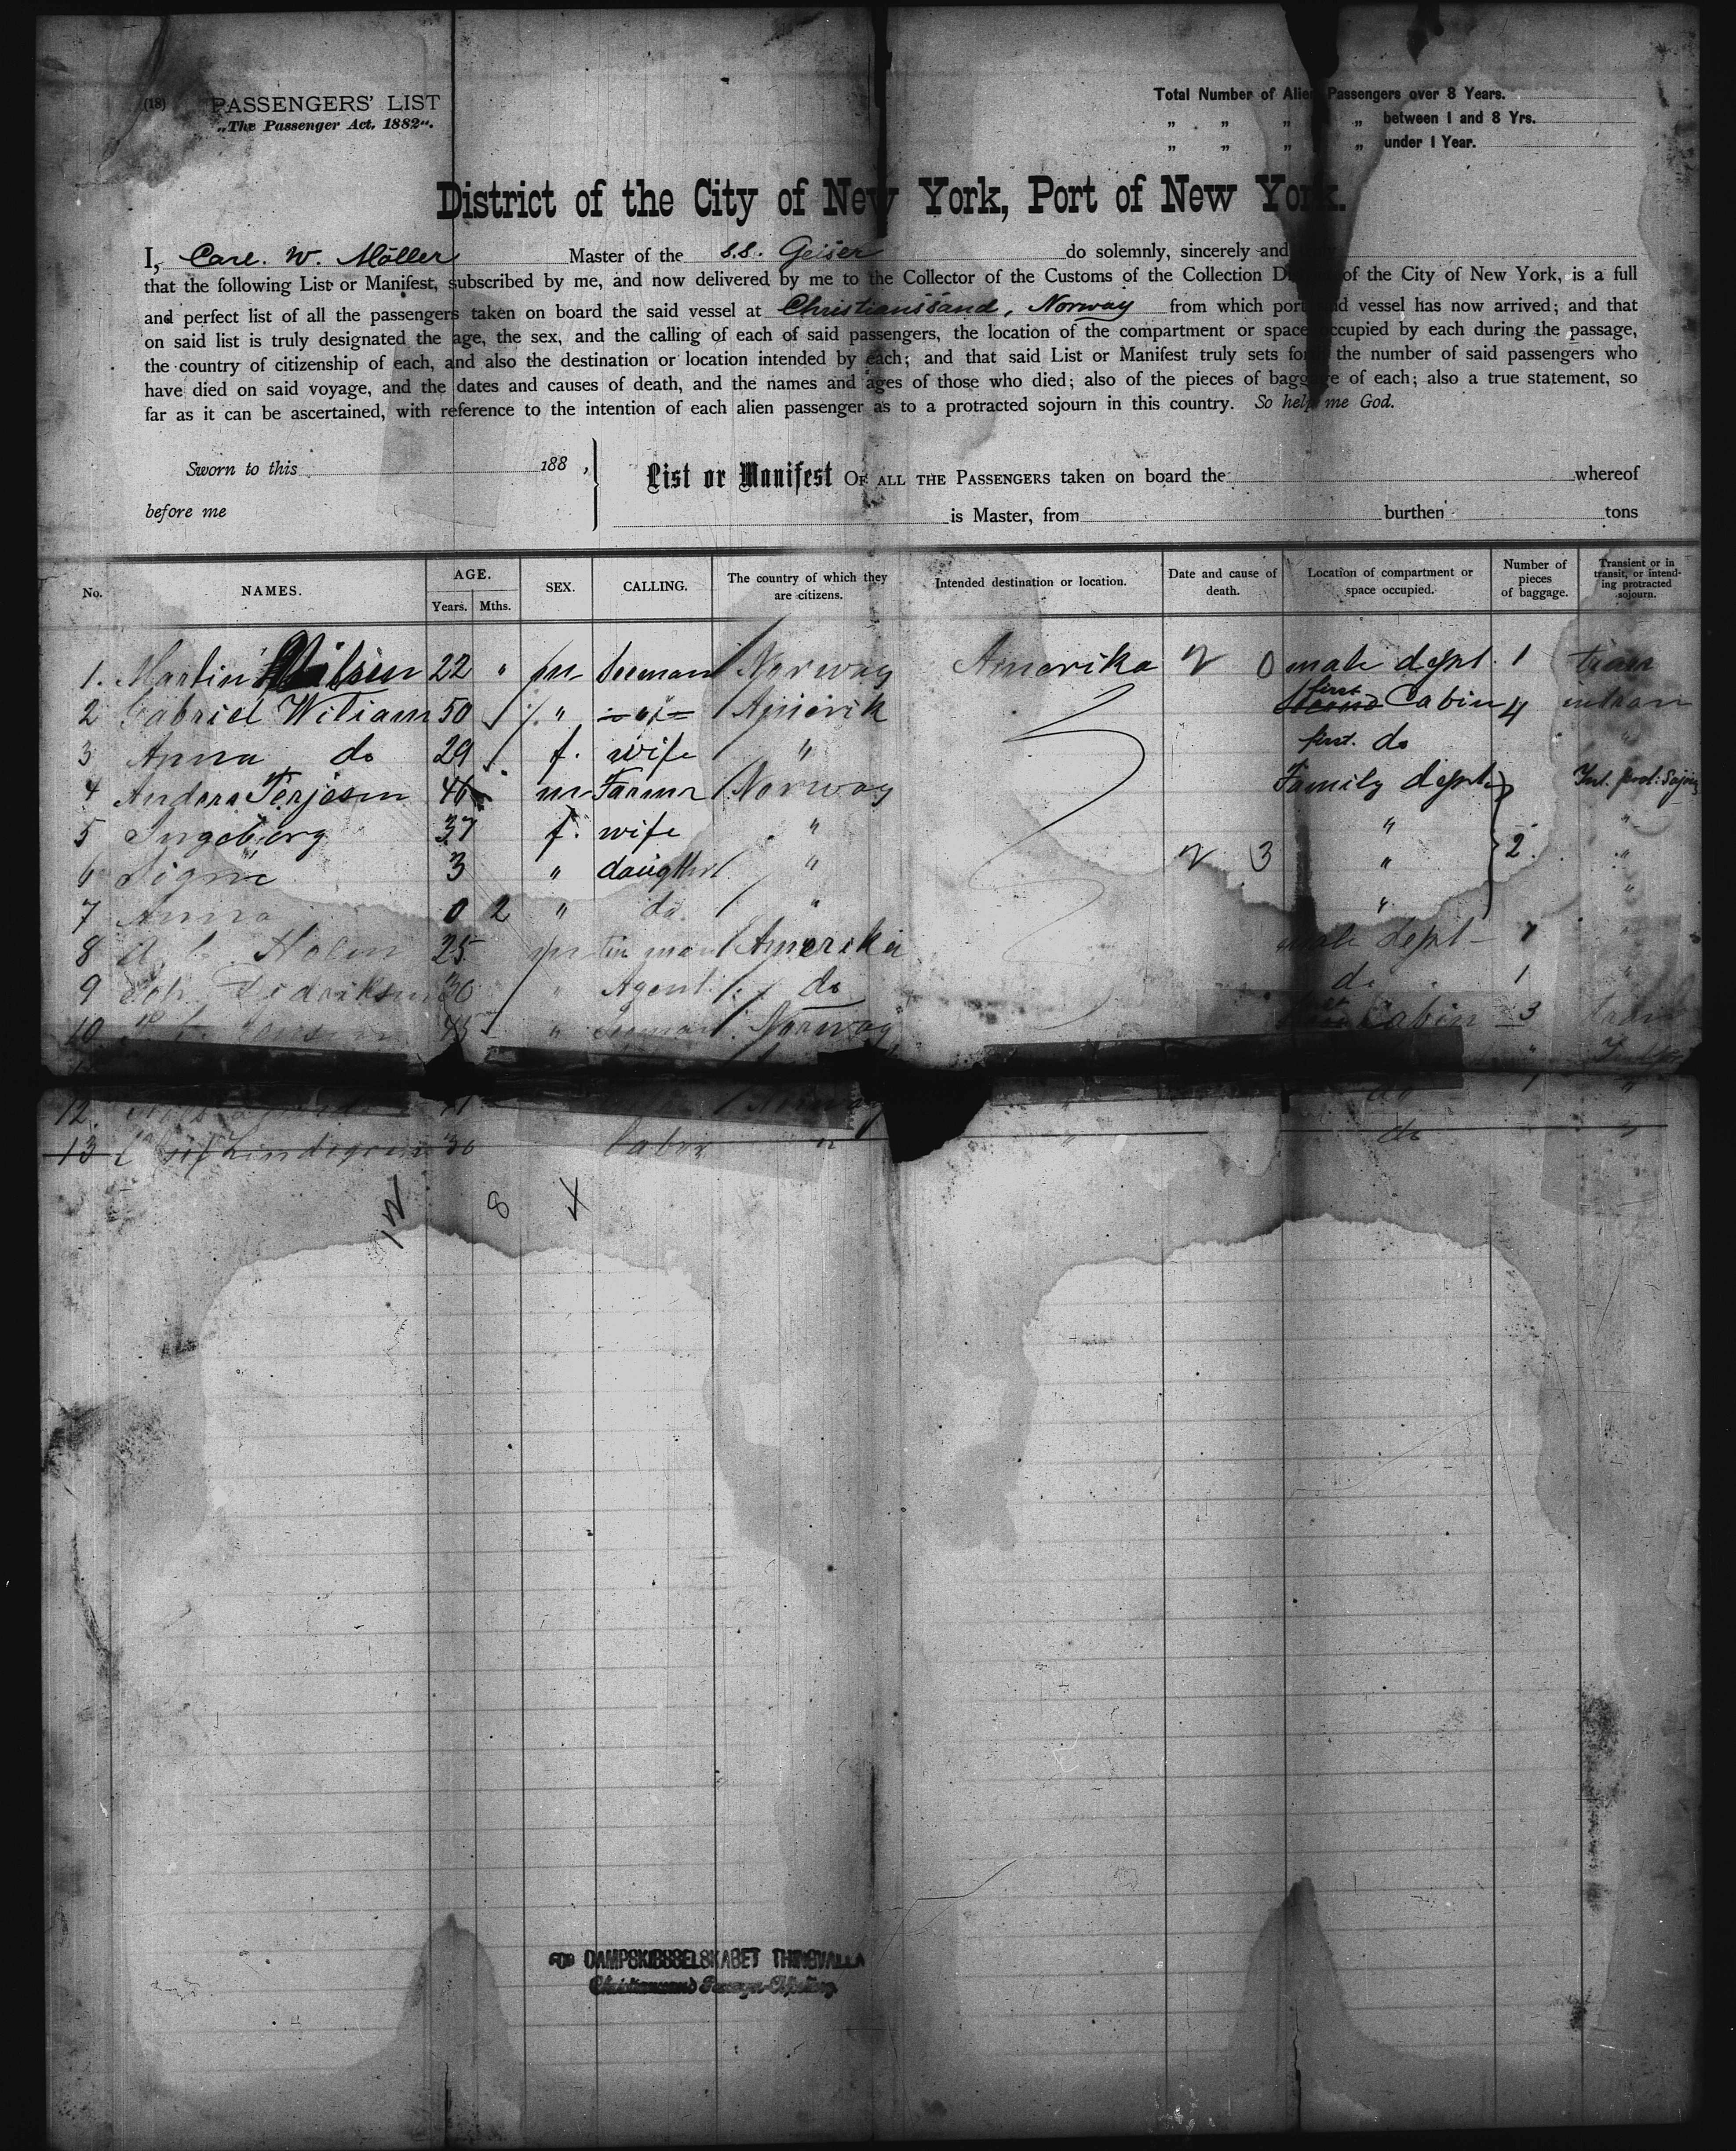 (18) PASSENGERS' LIST
„The Passenger Act, 1882“.
Total Number of Alien Passengers over 8 Years.
„ „ „ „ between 1 and 8 Yrs.
„ „ „ „ under 1 Year.
District of the City of New York, Port of New York.
I, Carl. W. Möller Master of the S.S. Geiser do solemnly, sincerely and
that the following List or Manifest, subscribed by me, and now delivered by me to the Collector of the Customs of the Collection District of the City of New York, is a full
and perfect list of all the passengers taken on board the said vessel at Christianssand, Norway from which port said vessel has now arrived; and that
on said list is truly designated the age, the sex, and the calling of each of said passengers, the location of the compartment or space occupied by each during the passage,
the country of citizenship of each, and also the destination or location intended by each; and that said List or Manifest truly sets forth the number of said passengers who
have died on said voyage, and the dates and causes of death, and the names and ages of those who died; also of the pieces of baggage of each; also a true statement, so
far as it can be ascertained, with reference to the intention of each alien passenger as to a protracted sojourn in this country. So help me God.
Sworn to this 188 ,
List or Manifest OF ALL THE PASSENGERS taken on board the whereof
before me
is Master, from burthen tons
No. NAMES. AGE. Years. Mths. SEX. CALLING. The country of which they are citizens. Intended destination or location. Date and cause of death. Location of compartment or space occupied. Number of pieces of baggage. Transient or in transit, or intending protracted sojourn.
1. Martin Nilsen 22 " m Seeman Norway Amerika 0 male dept. 1
2 Gabriel Wiliam 50 " Amerik first Cabin 4
3 Anna do 29 f. wife " first. do "
4 Anders Terjesen 46 m Farmer Norway Family dept. Int. prot: Sojour
5 Ingeborg 37 f. wife " " "
6 Signe 3 " daughter " 3 " 2 "
7 Anna 0 2 " do. " " "
8 A. C. Holm 25 m Amerika male dept 1 "
9 Fredriksen 30 " Agent. do do. 1 "
10 45 " Seeman Norway Cabin 3
12. do 1 "
13 Lindgren 30 labor " " do "
12 8 4
DAMPSKIBSSELSKABET THINGVALLA
Christianssand